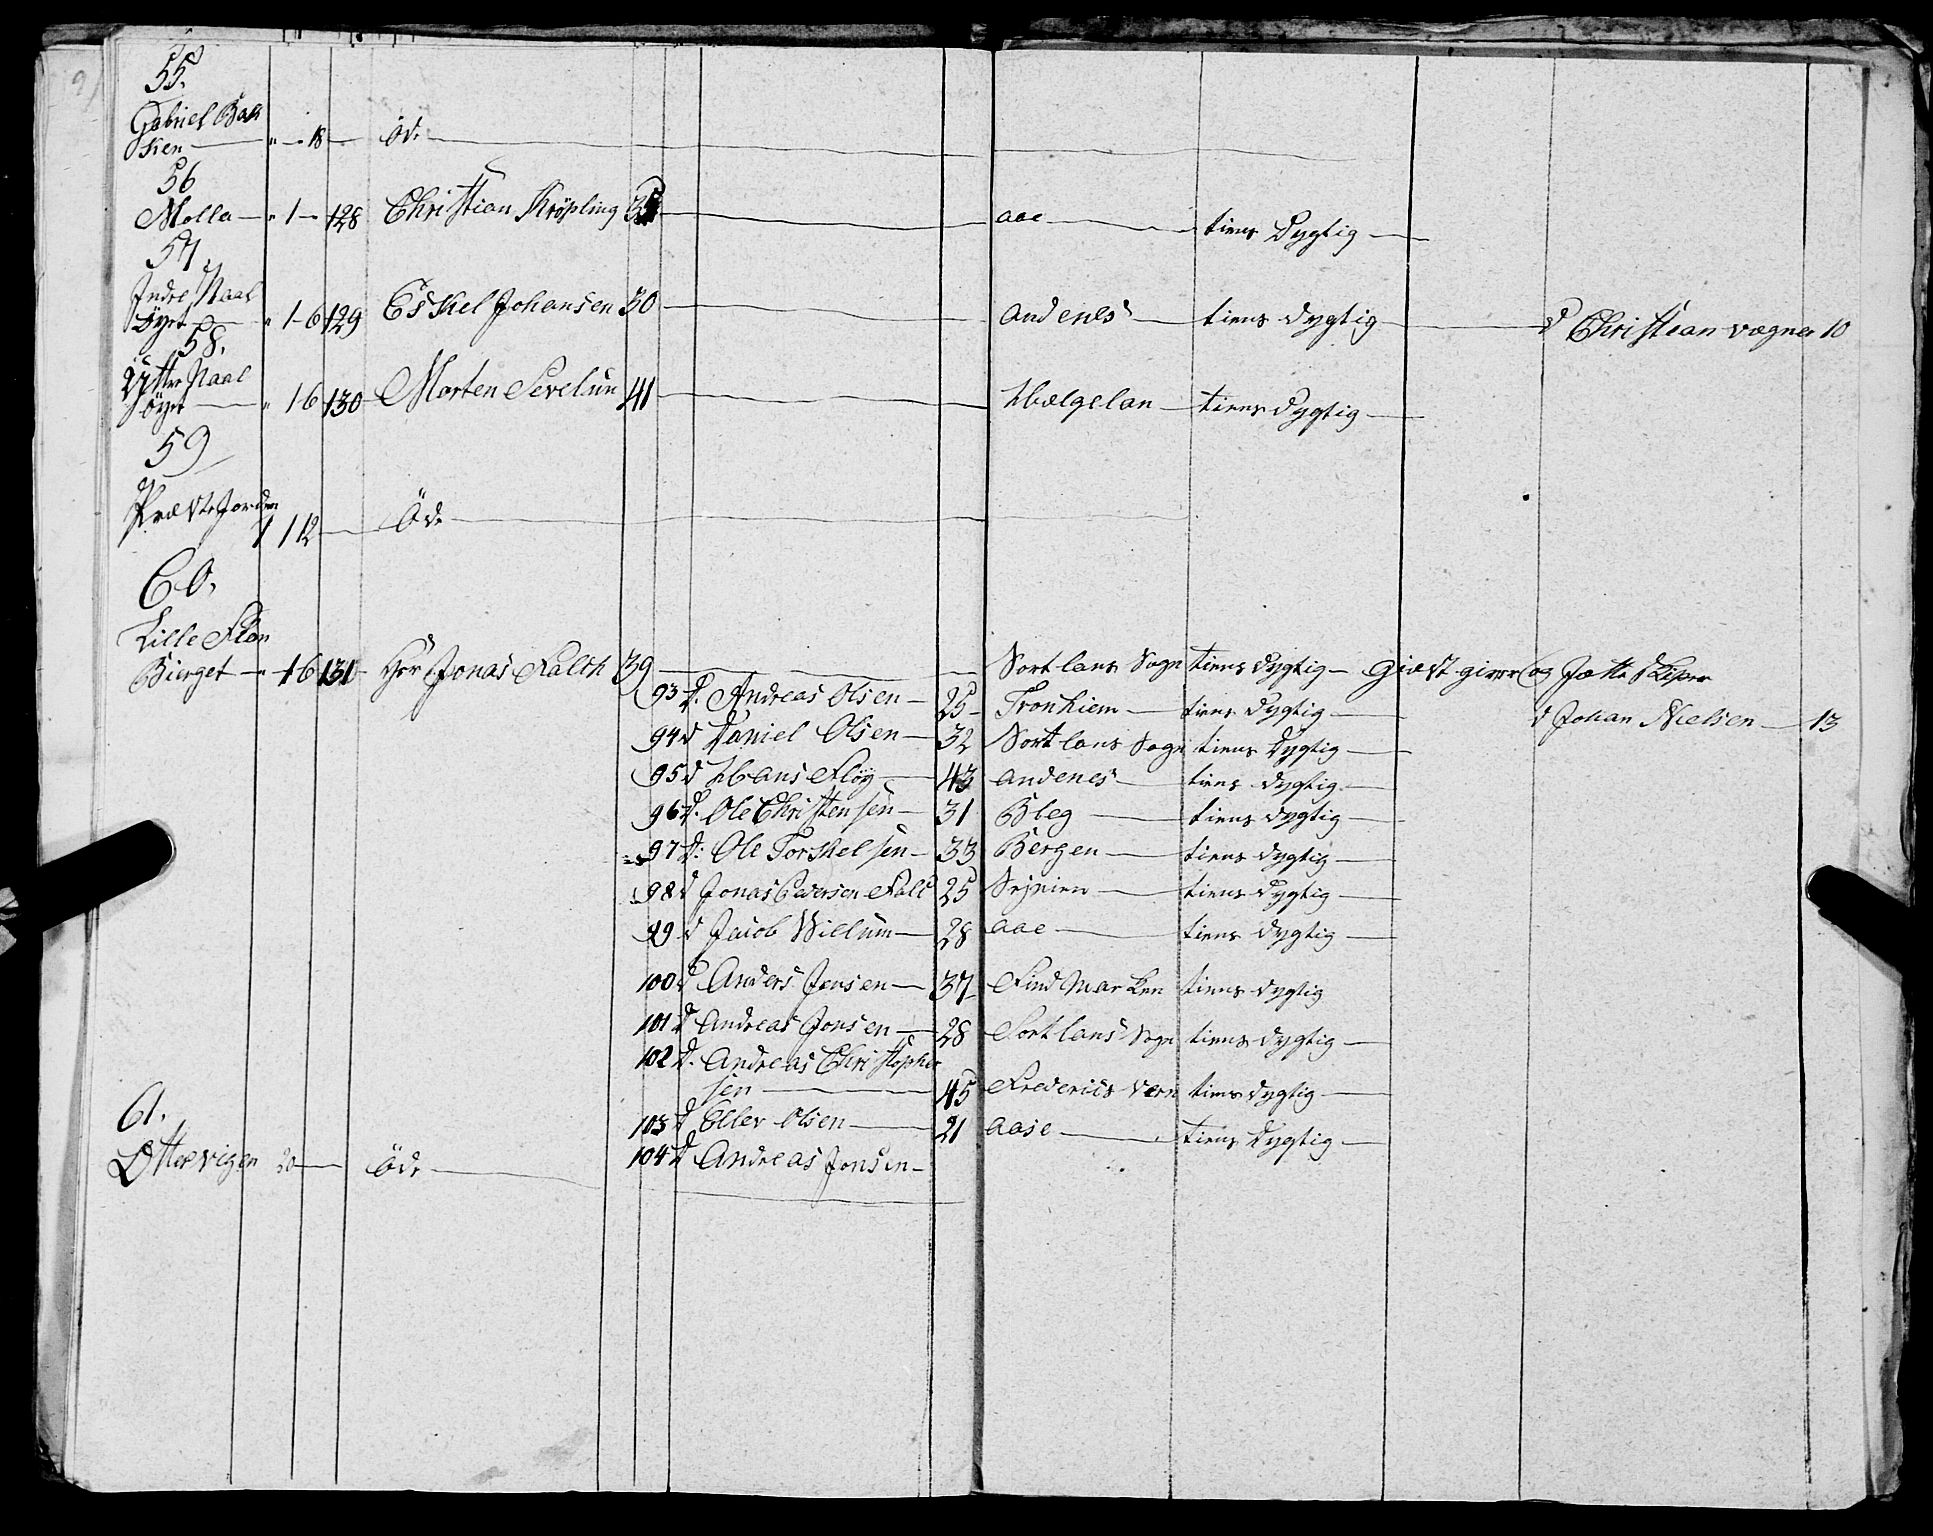 55.
Gabriel Bak
ken — " — 18 — Öde
56
Molla — " 1 — 128 Christian Kröpling 35 — aae — tiens Dygtig —
57
Indre Naal
Öyet — " 1-6 129 Eskel Johansen 30 — andenes — tiens dygtig — d Christian Vægner 10
58.
Ytter Naal
öyet — " 1-6 130 Morten Sevelun 41 — Hælgelan — tiens dygtig —
59
Præste Jorden
1 1 12 — Öde
60.
Lille Flon
Bierget — " 1-6 131 Hör Jonas Falch 39 — Sortlans Sogn tiens dygtig — Giæstgiver og Jætte Skiper
93 d. Andreas Olsen — 25 — Tronhiem — tiens dygtig — d Johan Nielsen — 13
94 d Daniel Olsen — 32 Sortlans Sogn tiens Dygtig —
95 d Hans Flöy — 43 andenes — tiens dygtig —
96 d. Ole Christensen — 31 Bleg — tiens dygtig —
97 d: Ole Torskelsen — 33 Bergen — tiens dygtig —
98 d Jonas Pedersen Falc 25 — tiens dygtig —
99 d Jacob Willum — 28 aae — tiens dygtig —
100 d Anders Jensen — 37 Findmarken tiens dygtig
101 d Andreas Jonsen — 28 Sortlans Sogn tiens dygtig —
102 d. Andreas Christopher
sen — 45 Frederics Vern tiens dygtig —
103 d Eller Olsen — 21 aase — tiens Dygtig —
61.
Otter vigen 20 — Öde — 104 d Andreas Jonsen —